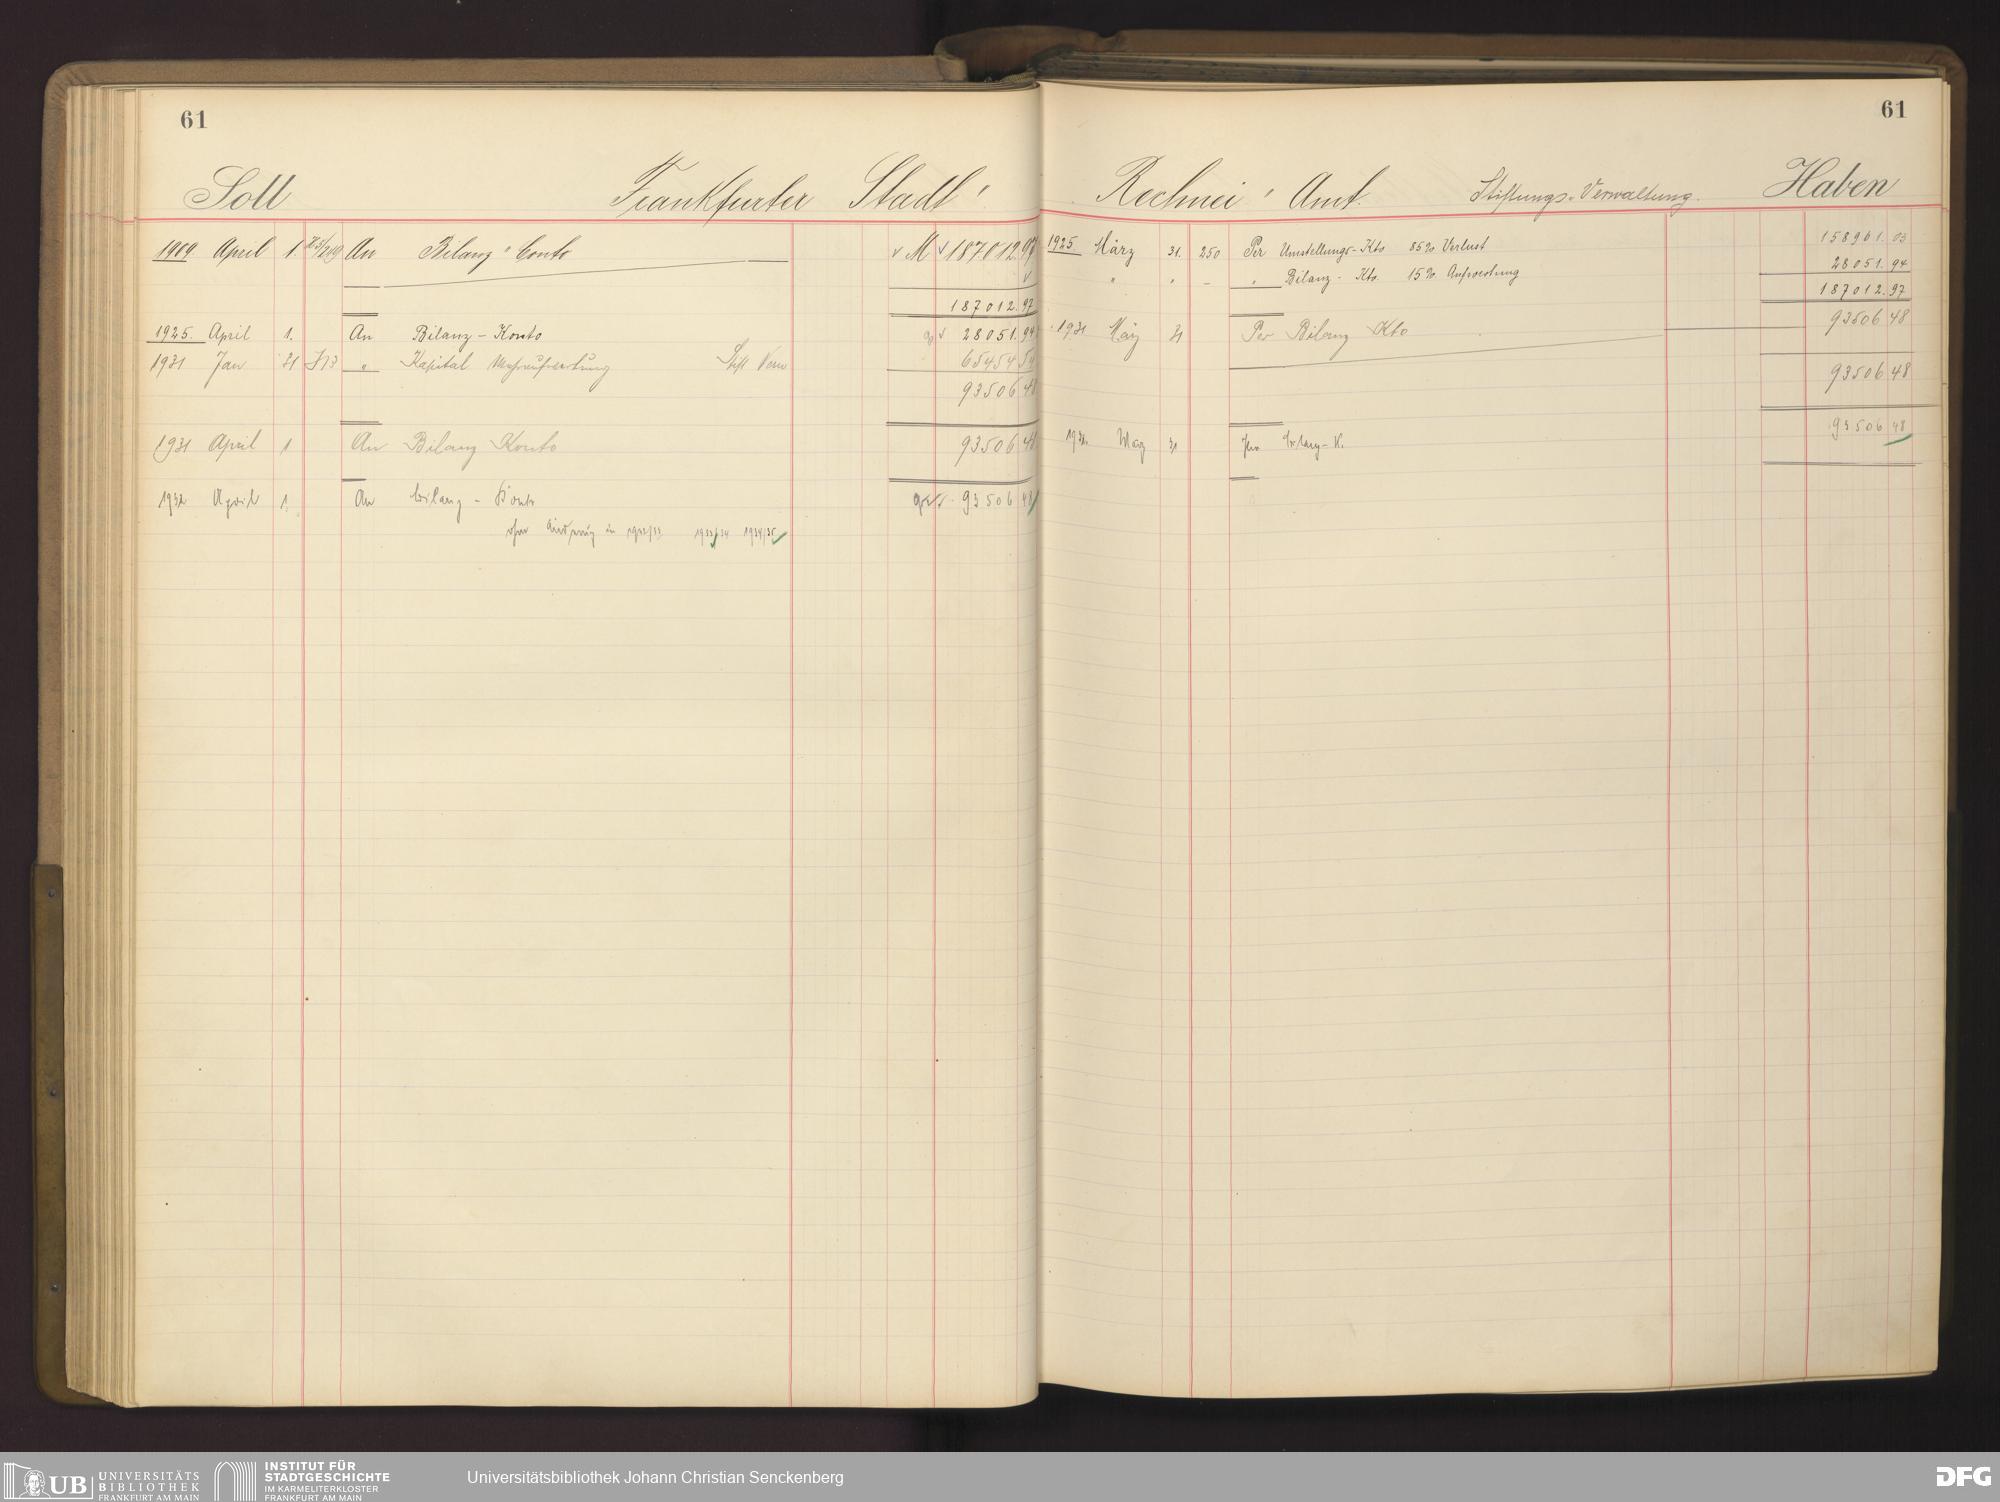 61
Soll Frankfurter Stadt-
1909 April 1. An Bilanz-Conto M 187.012.97
187012.97
1925. April 1. An Bilanz-Konto 28051.94
1931 Jan 31 J13 " Kapital Mehraufwertung Stift Verw 65454 54
93506 48
1931 April 1 An Bilanz Konto 93506 48
1932 April 1. An Bilanz-Konto 93506 48
ohne Änderung in 1932/33 1933/34 1934/35
61
Rechnei-Amt. Stiftungs-Verwaltung. Haben
1925. März 31. 250 Per Umstellungs-Kto 85% Verlust 158961.03
" " – " Bilanz-Kto. 15% Aufwertung 28051.94
187012.97
1931 März 31 Per Bilanz Kto 93506 48
93506 48
1932. März 31 Per Bilanz-K. 93506 48
UB UNIVERSITÄTS
BIBLIOTHEK
FRANKFURT AM MAIN
INSTITUT FÜR
STADTGESCHICHTE
IM KARMELITERKLOSTER
FRANKFURT AM MAIN
Universitätsbibliothek Johann Christian Senckenberg
DFG